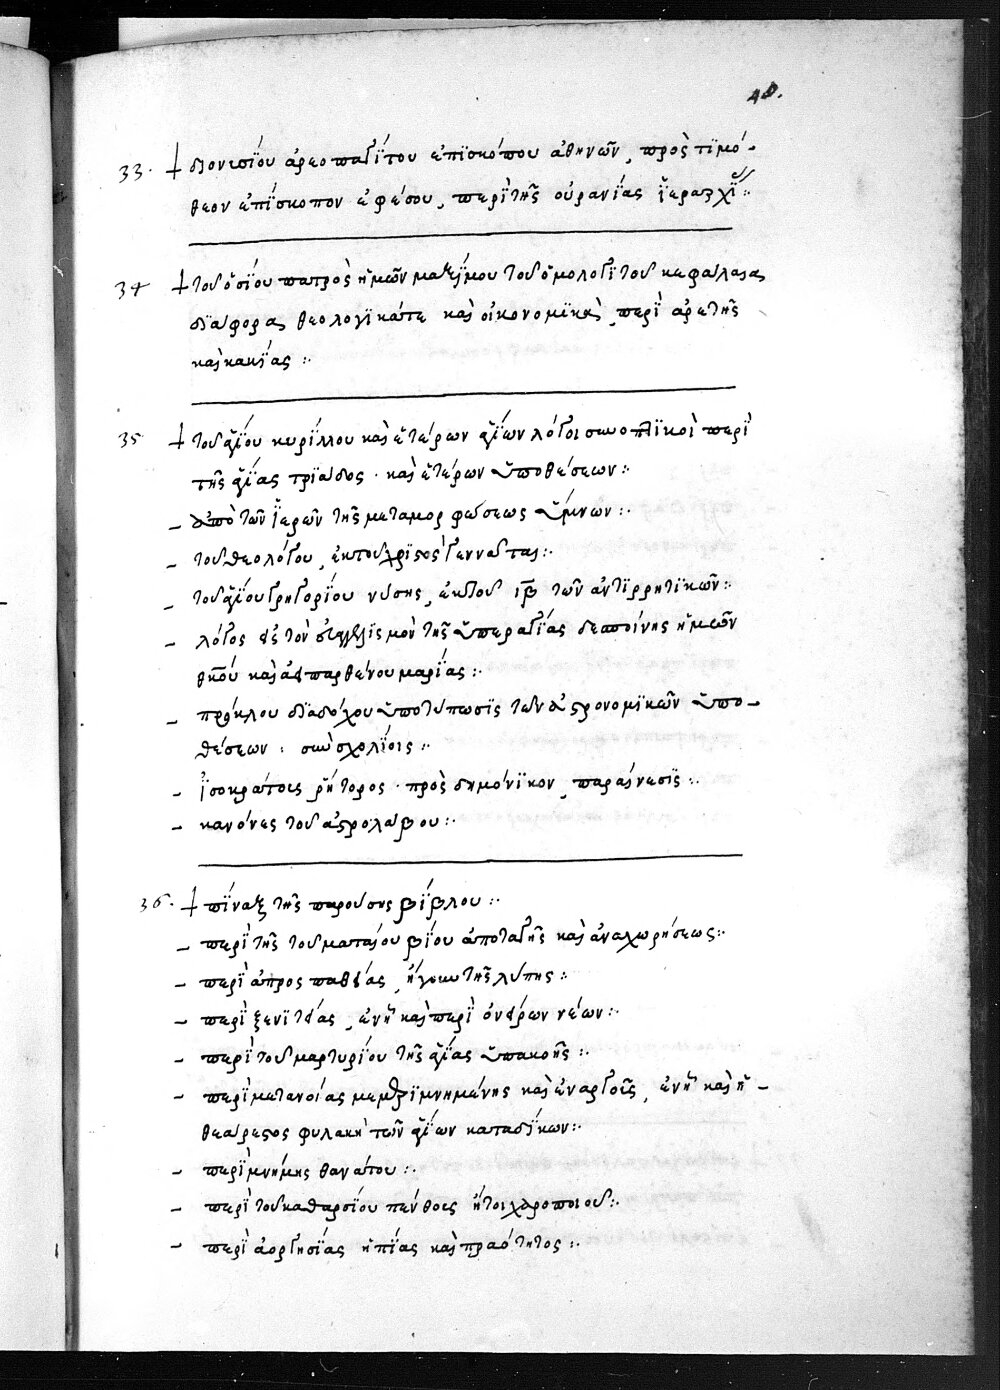 40.
33. + διονυσίου ἀρεοπαγΐτου ἐπϊσκόπου ἀθηνῶν, πρὸς τϊμό-
θεον ἐπΐσκοπον ἐφέσου, περὶ τῆς οὐρανίας ἱεραρχΐ :·
34 + τοῦ ὁσίου πατρὸς ἡμῶν μαξΐμου τοῦ ὁμολογϊτοῦ κεφάλαια
διάφορα θεολογϊκά τε καὶ οἰκονομϊκὰ, περὶ ἀρετῆς
καὶ κακΐας :·
35 + τοῦ ἁγίου κυρίλλου καὶ ἑτέρων ἁγίων λόγοι συνοπλϊκοὶ περὶ
τῆς ἁγίας τρϊάδος · καὶ ἑτέρων ὑποθέσεων :·
- ἀπὸ τῶν ἱερῶν τῆς μεταμορφώσεως ὕμνων :·
- τοῦ θεολόγου, ἐκ τοῦ χριστὸς γεννᾶται :·
- τοῦ ἁγίου γρηγορΐου νύσης, ἐκ τοῦ ιβ τῶν ἀντιρρητϊκῶν :·
- λόγος εἰς τὸν εὐαγγελισμὸν τῆς ὑπεραγίας δεσποίνης ἡμῶν
θκου καὶ ἀειπαρθένου μαρΐας :·
- πρόκλου διαδόχου ὑποτύπωσις τῶν ἀστρονομϊκῶν ὑπο-
θέσεων : σὺν σχολίοις :·
- ἰσοκράτους ῥήτορος · πρὸς δημόνϊκον, παραίνεσϊς :·
- κανόνες τοῦ ἀστρολάβου :·
36. + πίναξ τῆς παρούσης βΐβλου :·
- περὶ τῆς τοῦ ματαίου βίου ἀποταγῆς καὶ ἀναχωρήσεως :·
- περὶ ἀπροσπαθείας, ἤγουν τῆς λύπης :·
- περὶ ξενϊτείας, ἐν ᾗ καὶ περὶ ὀνείρων νέων :·
- περὶ τοῦ μαρτυρίου τῆς ἁγίας ὑπακοῆς :·
- περὶ μετανοίας μεμεριμνημένης καὶ ἐναργοῦς, ἐν ᾗ καὶ ἡ -
θεάρεστος φυλακὴ τῶν ἁγίων καταδΐκων :·
- περὶ μνήμης θανάτου :·
- περὶ τοῦ καθαρσΐου πένθους ἤτοι χαροποιοῦ :·
- περὶ ἀοργησΐας ἠπίας καὶ πραότητος :·